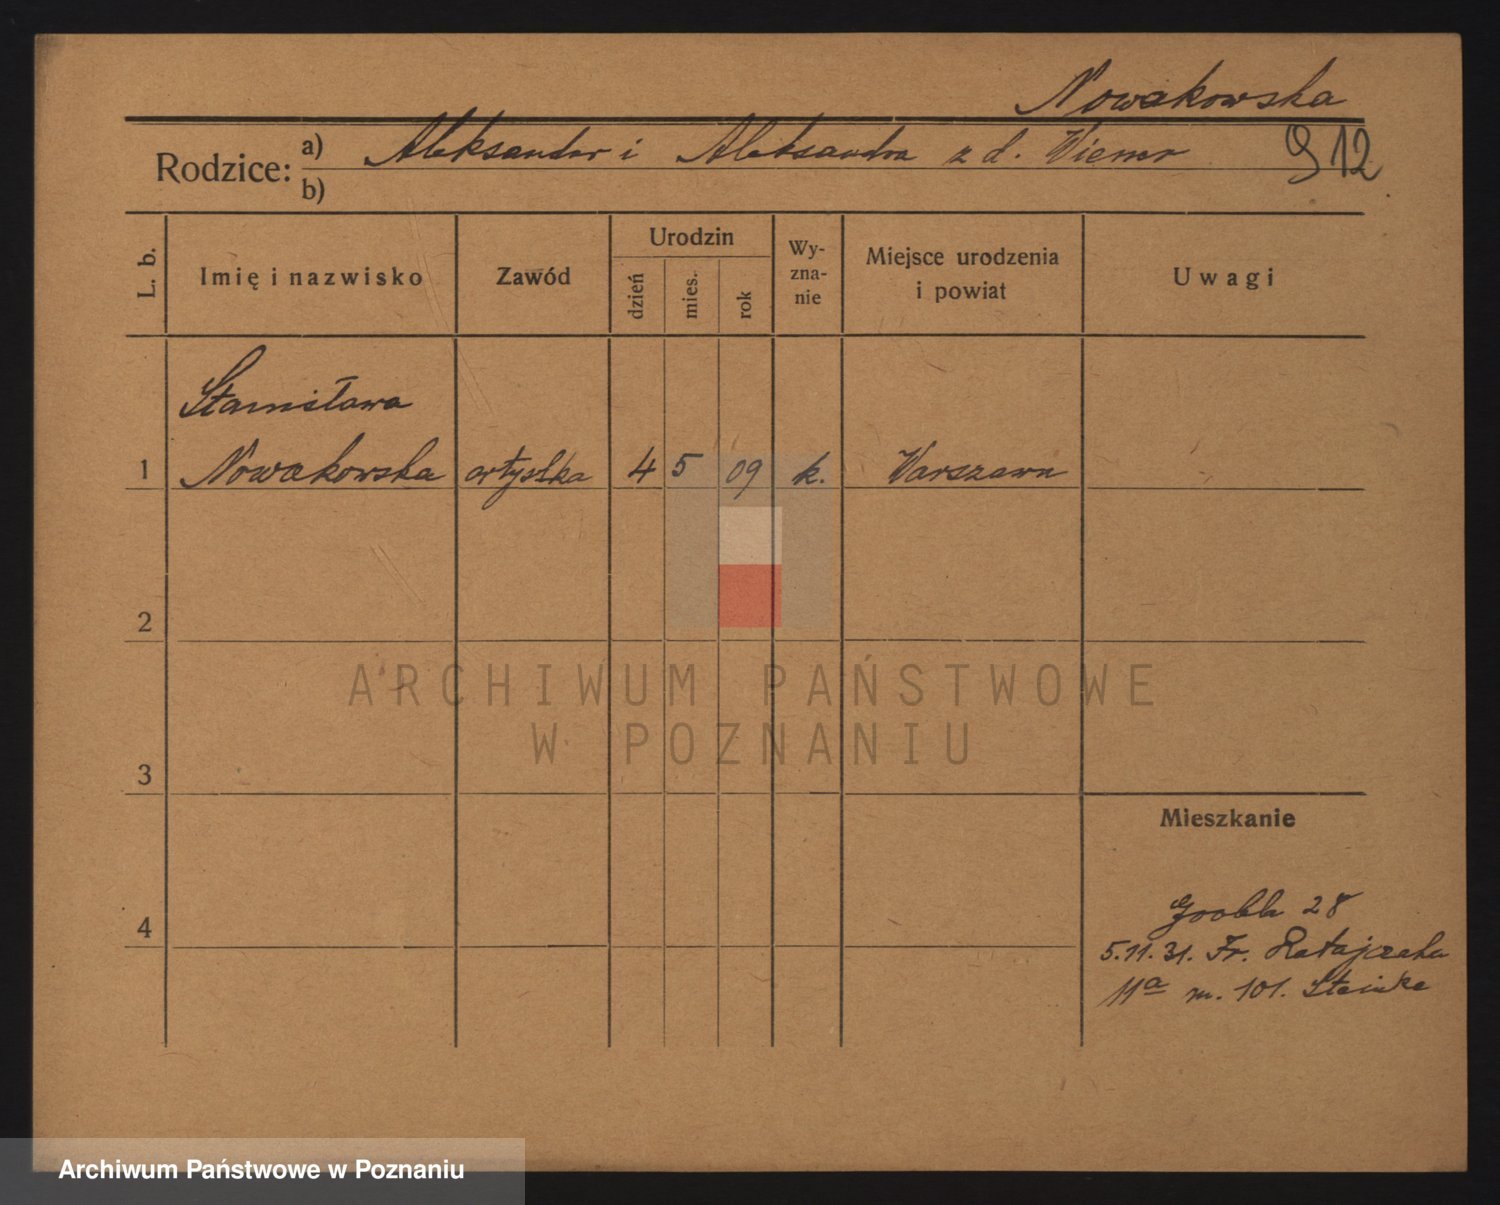 Nowakowska
Rodzice: a) Aleksander i Aleksandra z d. Wiemer 912
b)
L. b. Imię i nazwisko Zawód Urodzin dzień mies. rok Wy-zna-nie Miejsce urodzenia i powiat Uwagi
Stanisława
1 Nowakowska artystka 4 5 09 k. Warszawa
2
ARCHIWUM PAŃSTWOWE
W POZNANIU
3
Mieszkanie
4
Grobla 28
5.11.31. Fr. Ratajczaka
11a m. 101. Steinke
Archiwum Państwowe w Poznaniu